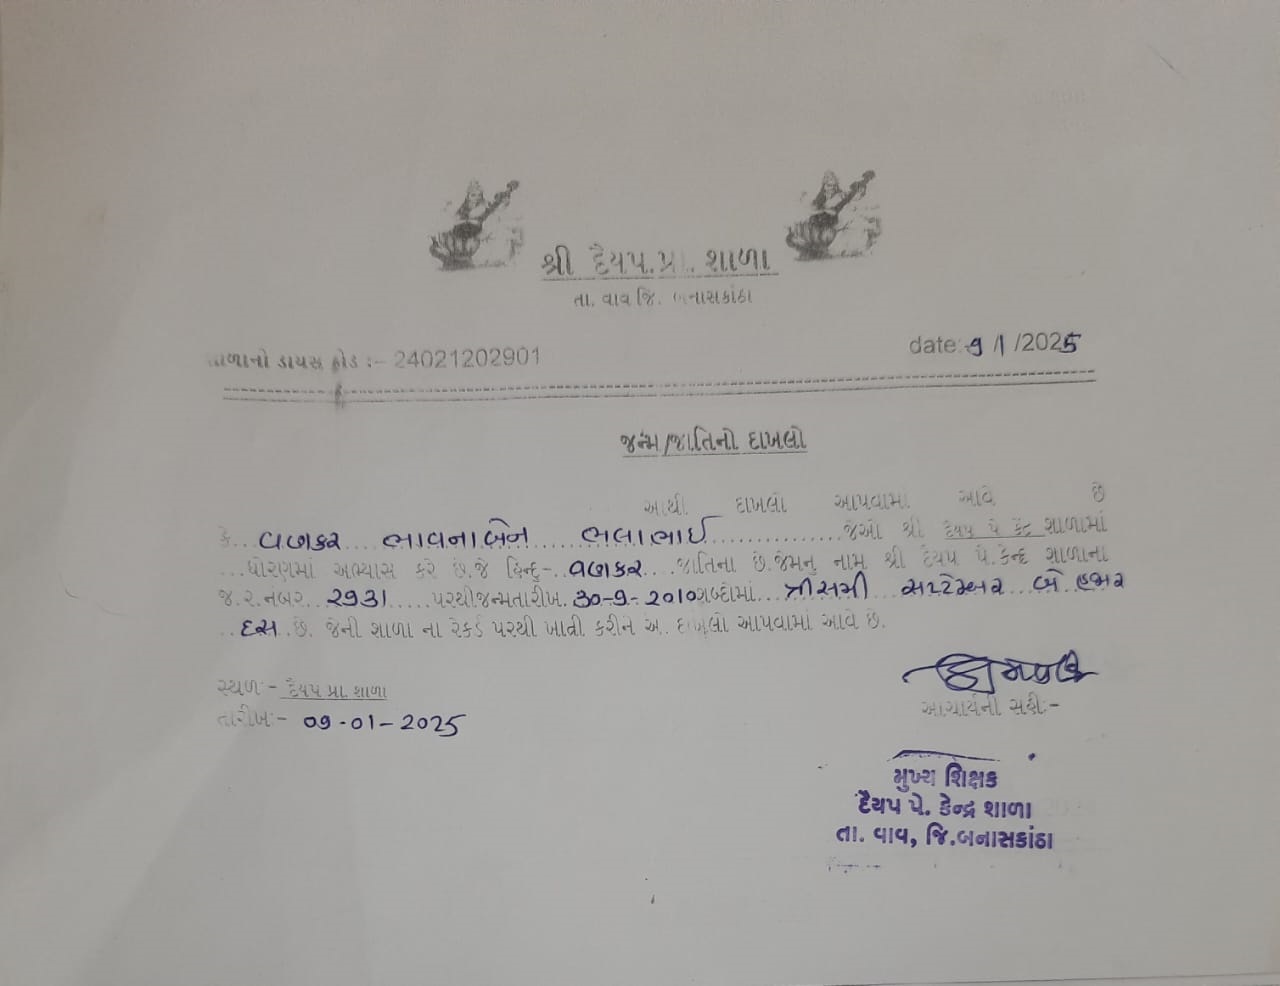 શ્રી દૈયપ.પ્રા. શાળા
તા. વાવ જિ. બનાસકાંઠા
શાળાનો ડાયસ કોડ :- 24021202901
date:-9/1/2025
જન્મ/જાતિનો દાખલો
આથી દાખલો આપવામાં આવે છે
કે.. વણકર ભાવનાબેન ભલાભાઈ ................ જેઓ શ્રી દૈયપ પે કેન્દ્ર શાળામાં
...ધોરણમાં અભ્યાસ કરે છે.જે હિન્દુ-..વણકર....જાતિના છે.જેમનુ નામ શ્રી દૈયપ પે.કેન્દ્ર શાળાના
જ.ર.નંબર..2931.....પરથી.જન્મતારીખ.30-9-2010શબ્દોમાં...ત્રીસમી સપ્ટેમ્બર બે હજાર
..દસ..છે. જેની શાળા ના રેકર્ડ પરથી ખાત્રી કરીને આ દાખલો આપવામાં આવે છે.
સ્થળ:- દૈયપ પ્રા. શાળા
તારીખ:- 09-01-2025
આચાર્યની સહી:-
મુખ્ય શિક્ષક
દૈયપ પે. કેન્દ્ર શાળા
તા. વાવ, જિ.બનાસકાંઠા